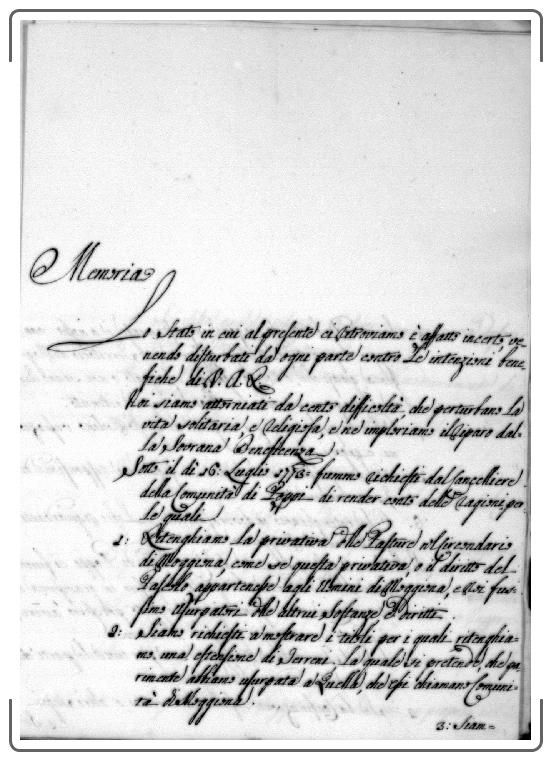 Memoria
Lo Stato in cui al presente ci ritroviamo è affatto incerto, ve-
nendo disturbati da ogni parte contro Le intenzioni bene-
fiche di V. A. R.
Noi siamo attorniati da cento difficoltà che perturbano La
vita solitaria e Religiosa, e ne imploriamo il riparo dal-
la Sovrana Beneficenza
Sotto il dì 16: Luglio 1773: fummo richiesti dal Cancelliere
della Comunità di Poppi di render conto delle Ragioni per
le quali
1: Retenghiamo La privativa delle Pasture nel Circondario
di Moggiona, come se questa privativa, o il diritto del
Pascolo appartenesse agli Uomini di Moggiona, e Noi fus-
simo usurpatori delle altrui Sostanze e Diritti.
2: Siamo richiesti a mostrare i titoli per i quali retenghia-
mo una estensione di Terreni, la quale si pretende, che pa-
rimente abbiamo usurpata a Quella, che essi chiamano Comuni-
tà di Moggiona.
3: Siam=